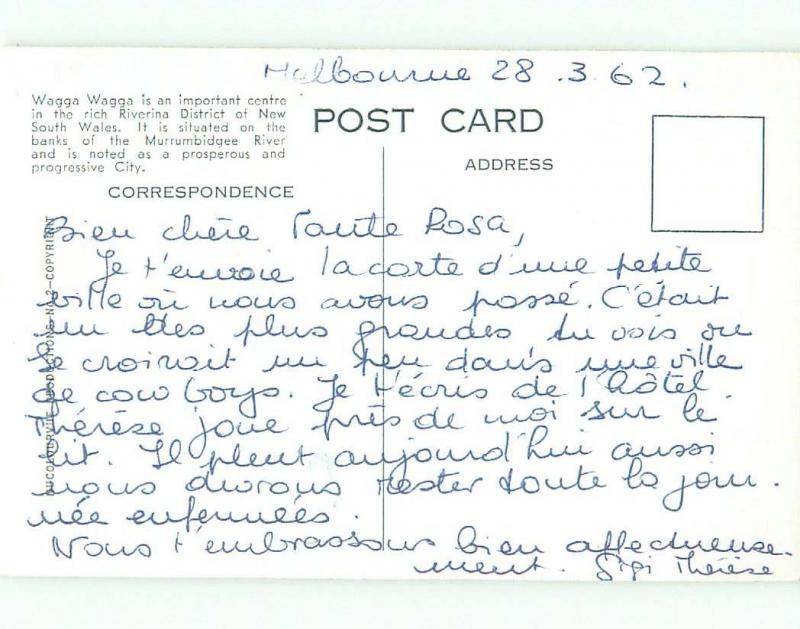 Melbourne 28.3.62.
Wagga Wagga is an important centre
in the rich Riverina District of New
South Wales. It is situated on the
banks of the Murrumbidgee River
and is noted as a prosperous and
progressive City.
POST CARD
CORRESPONDENCE
ADDRESS
Bien chère Tante Rosa,
Je t'envoie la carte d'une petite
ville où nous avons passé. C'était
une des plus grandes tu vois on
se croirait un peu dans une ville
de cow boys. Je t'écris de l'hôtel.
Thérèse joue près de moi sur le
lit. Il pleut aujourd'hui aussi
nous devrons rester toute la jour-
née enfermées.
Nous t'embrassons bien affectueuse-
ment. Gigi Thérèse
NUCOLOURVUE PRODUCTIONS-No. 2-COPYRIGHT